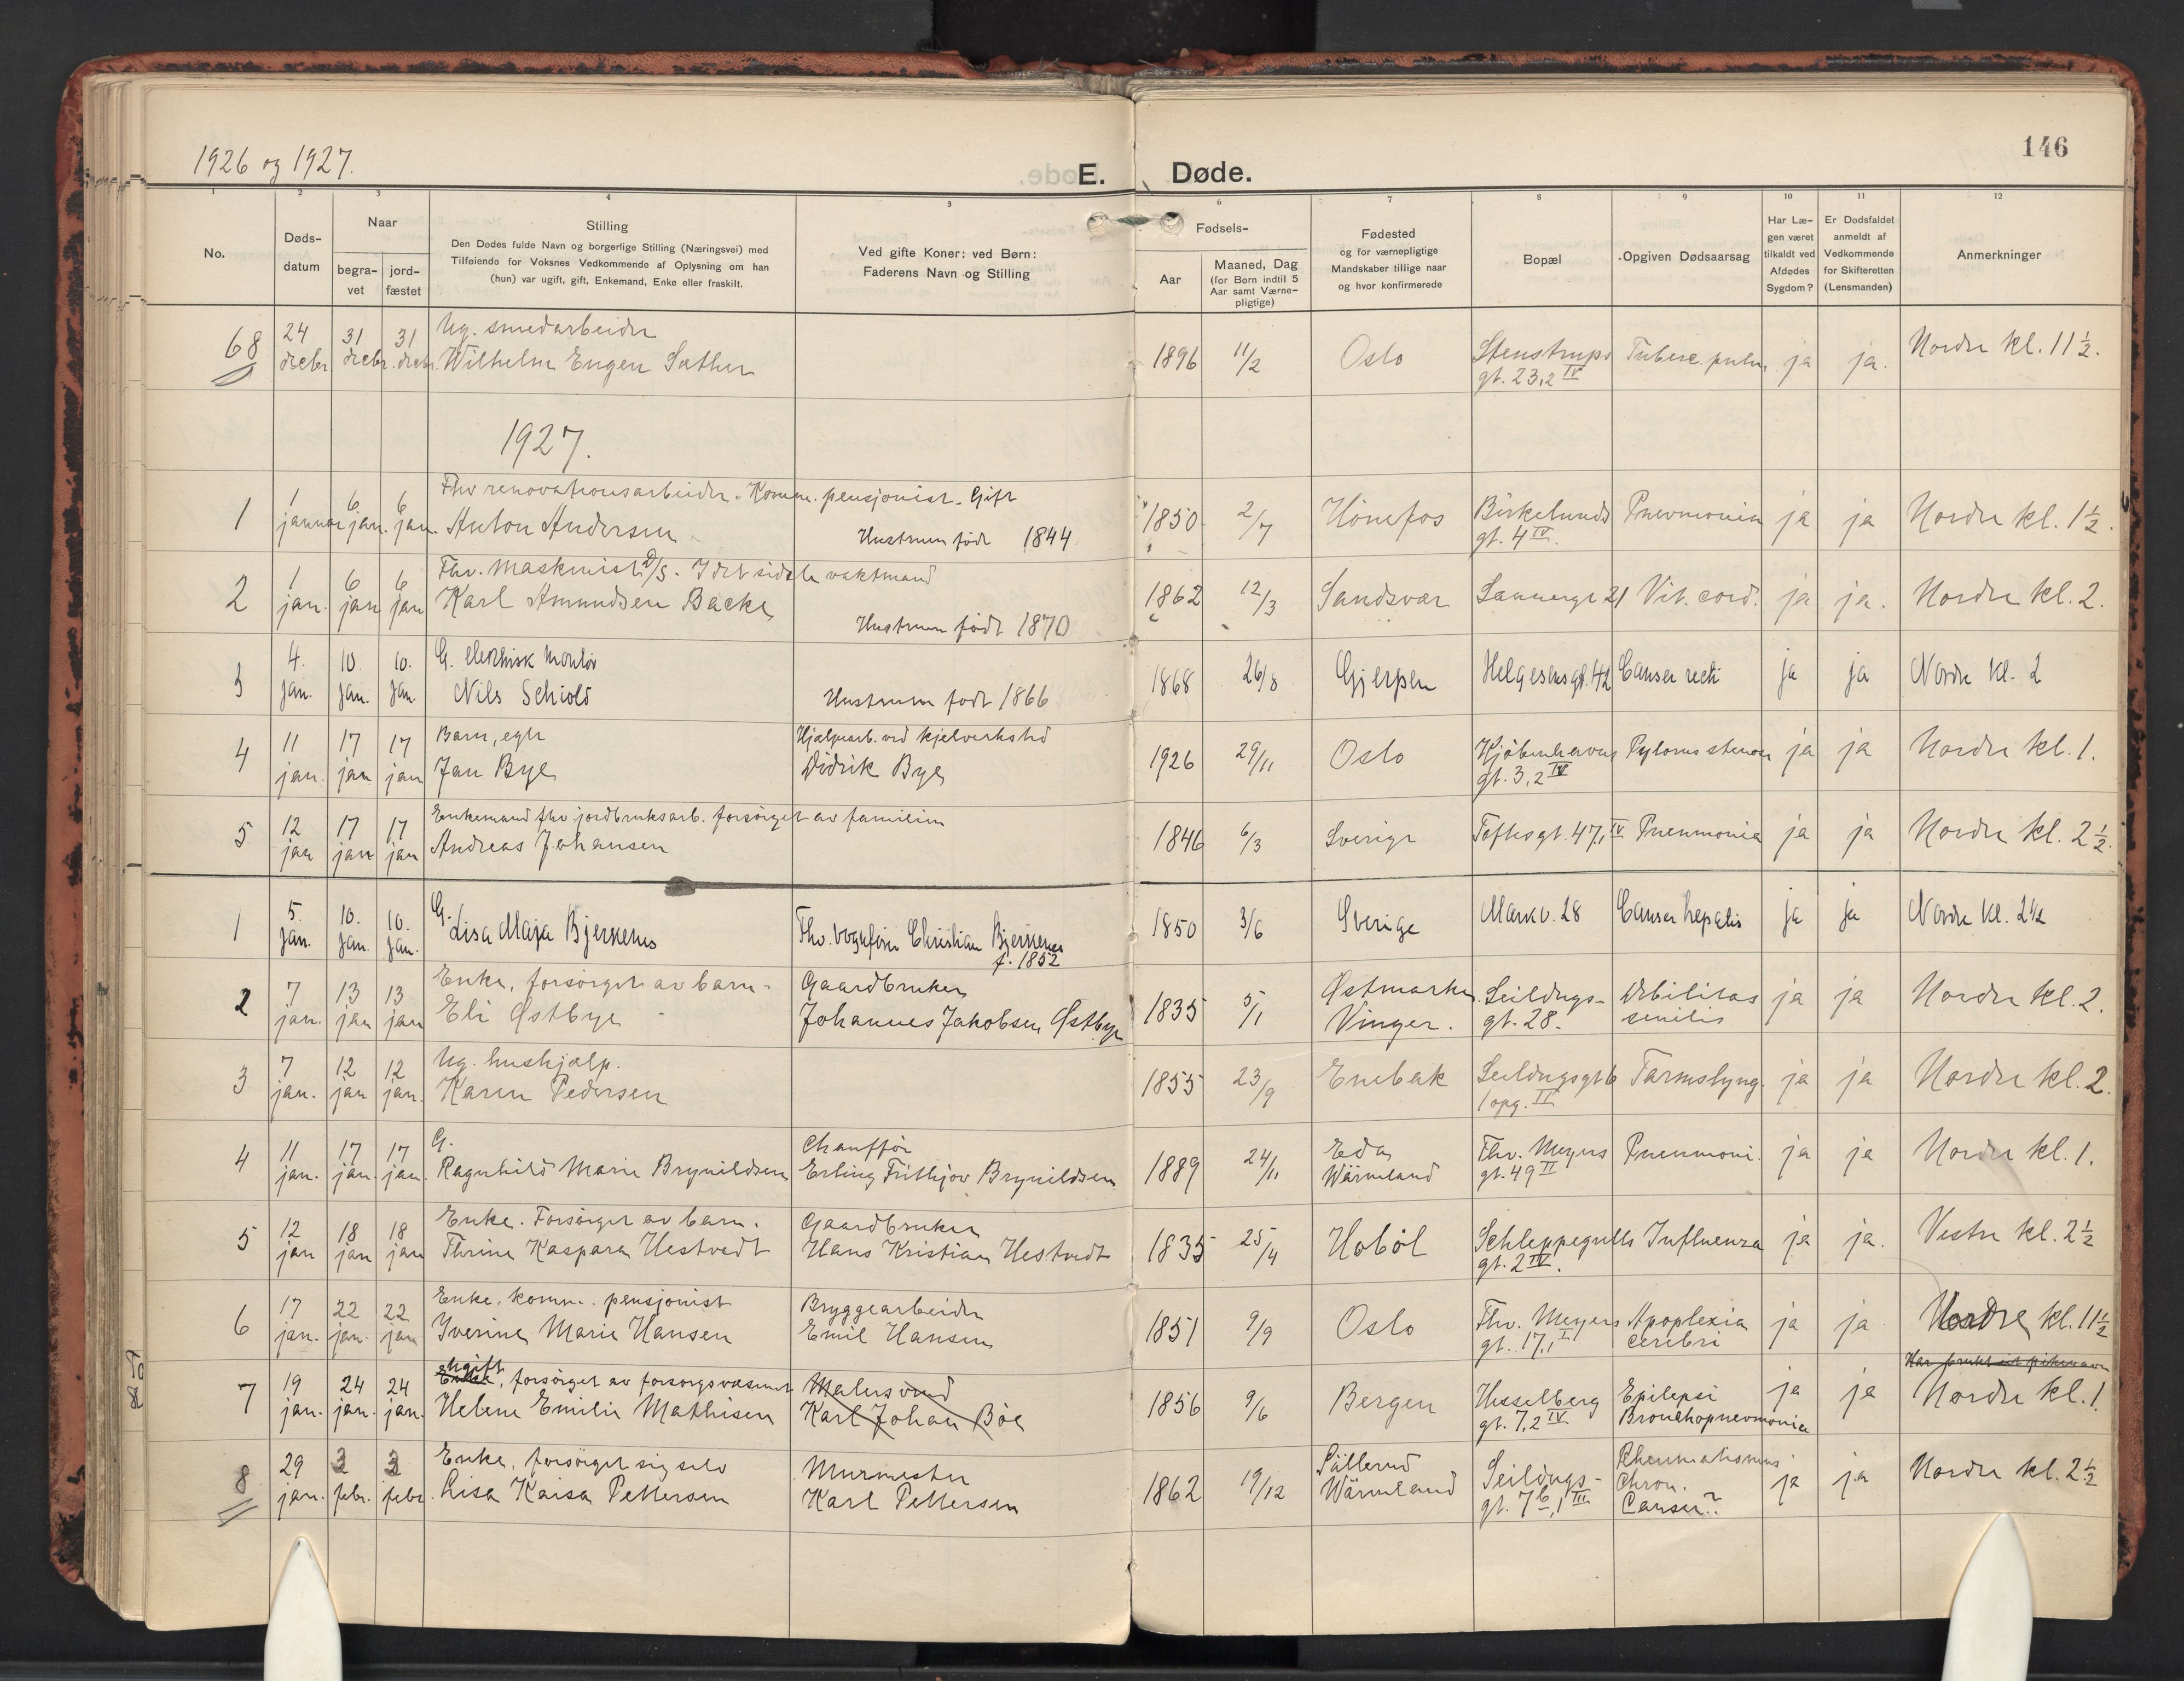 1926 og 1927.
E. Døde.
146
1 2 3 4 5 6 7 8 9 10 11 12
No.
Døds-
datum
Naar
begra-
vet
jord-
fæstet
Stilling
Den Dødes fulde Navn og borgerlige Stilling (Næringsvei) med
Tilføiende for Voksnes Vedkommende af Oplysning om han
(hun) var ugift, gift, Enkemand, Enke eller fraskilt.
Ved gifte Koner: ved Børn:
Faderens Navn og Stilling
Fødsels-
Aar
Maaned, Dag
(for Børn indtil 5
Aar samt Værne-
pligtige)
Fødested
og for værnepligtige
Mandskaber tillige naar
og hvor konfirmerede
Bopæl
Opgiven Dødsaarsag
Har Læ-
gen været
tilkaldt ved
Afdødes
Sygdom?
Er Dødsfaldet
anmeldt af
Vedkommende
for Skifteretten
(Lensmanden)
Anmerkninger
68 24 decbr 31 decbr. 31 decbr. Ug. smedarbeider
Wilhelm Eugen Sæther 1896 11/2 Oslo Stenstrups
gt. 23,2 IV Tuberc. pulm. ja ja. Nordre kl. 11 1/2.
1927.
1 1 januar 6 jan. 6 jan. Fhv renovationsarbeider. Komm. pensjonist. Gift
Anton Andersen Hustruen født 1844 1850 2/7 Hönefos Birkelunds
gt. 4 IV. Pnevmonia ja ja Nordre kl. 1 1/2.
2 1 jan. 6 jan 6 jan Fhv. Maskinist D/S. I det sidste vaktmand
Karl Amundsen Backe Hustruen født 1870 1862 12/3 Sandsvær Sannergt 21 Vit. cord. ja ja. Nordre kl. 2.
3 4. jan. 10. jan. 10. jan. G. elektrisk montör
Nils Schiold Hustruen født 1866 1868 26/8 Gjerpen Helgesensgt. 42 Canser recti ja ja Nordre kl. 2
4 11 jan. 17 jan 17 jan Barn, egte
Jan Bye Hjælpearb. ved kjelverksted
Didrik Bye 1926 29/11 Oslo Kjöbenhavns
gt. 3,2 IV Pylorus stenose ja ja Nordre kl. 1.
5 12 jan 17 jan 17 jan Enkemand fhv jordbruksarb. forsörget av familien
Andreas Johansen 1846 6/3 Sverige Toftesgt. 47,1 IV Pneumonia ja ja Nordre kl. 2 1/2.
1 5. jan. 10. jan. 10. jan. G.
Lisa Maja Bjerkenes Fhv. vognfører Christian Bjerkenes
f. 1852 1850 3/6 Sverige Markv. 28 Canser hepatis ja ja Nordre kl. 2 1/2
2 7 jan. 13 jan 13 jan Enke, forsörget av barn.
Eli Østbye Gaardbruker
Johannes Jakobsen Østbye 1835 5/1 Østmarka
Vinger. Seildugs-
gt. 28. Debilitas
senilis ja ja Nordre kl. 2.
3 7 jan. 12 jan 12 jan. Ug. hushjælp.
Karen Pedersen 1855 23/9 Enebak Seildugsgt 6
1 opg. II Tarmslyng. ja ja Nordre kl. 2.
4 11 jan. 17 jan. 17 jan. G.
Ragnhild Marie Brynildsen Chauffør
Erling Frithjov Brynildsen 1889 24/11 Eda
Wärmland Thv. Meyers
gt. 49 II Pneumoni. ja ja Nordre kl. 1.
5 12 jan 18 jan 18 jan Enke. Forsörget av barn.
Thrine Kaspara Hestvedt Gaardbruker
Hans Kristian Hestvedt 1835 25/4 Hoböl Schleppegrells
gt. 2 IV. Influenza ja ja. Vestre kl. 2 1/2
6 17 jan. 22 jan. 22 jan Enke, komm. pensjonist
Iverine Marie Hansen Bryggearbeider
Emil Hansen 1851 9/9 Oslo Thv. Meyers
gt. 17,1 I Apoplexia
cerebri ja ja Nordre kl. 11 1/2
7 19 jan. 24 jan. 24 jan. Ugift
Enke, forsörget av forsorgsvæsenet
Helene Emilie Mathisen Malersvend
Karl Johan Böe 1856 9/6 Bergen Hesselberg
gt. 7,2 IV Epilepsi
Bronchopnevmonia ja ja Har brukt sit pikenavn
Nordre kl. 1.
8 29 jan. 3 febr. 3 febr. Enke, forsörget sig selv
Lisa Kaisa Pettersen Murmester
Karl Pettersen 1862 19/12 Sillerud
Wärmland Seildugs-
gt. 7 b, 1 III Rheumatismus
chron.
Canser? ja ja Nordre kl. 2 1/2